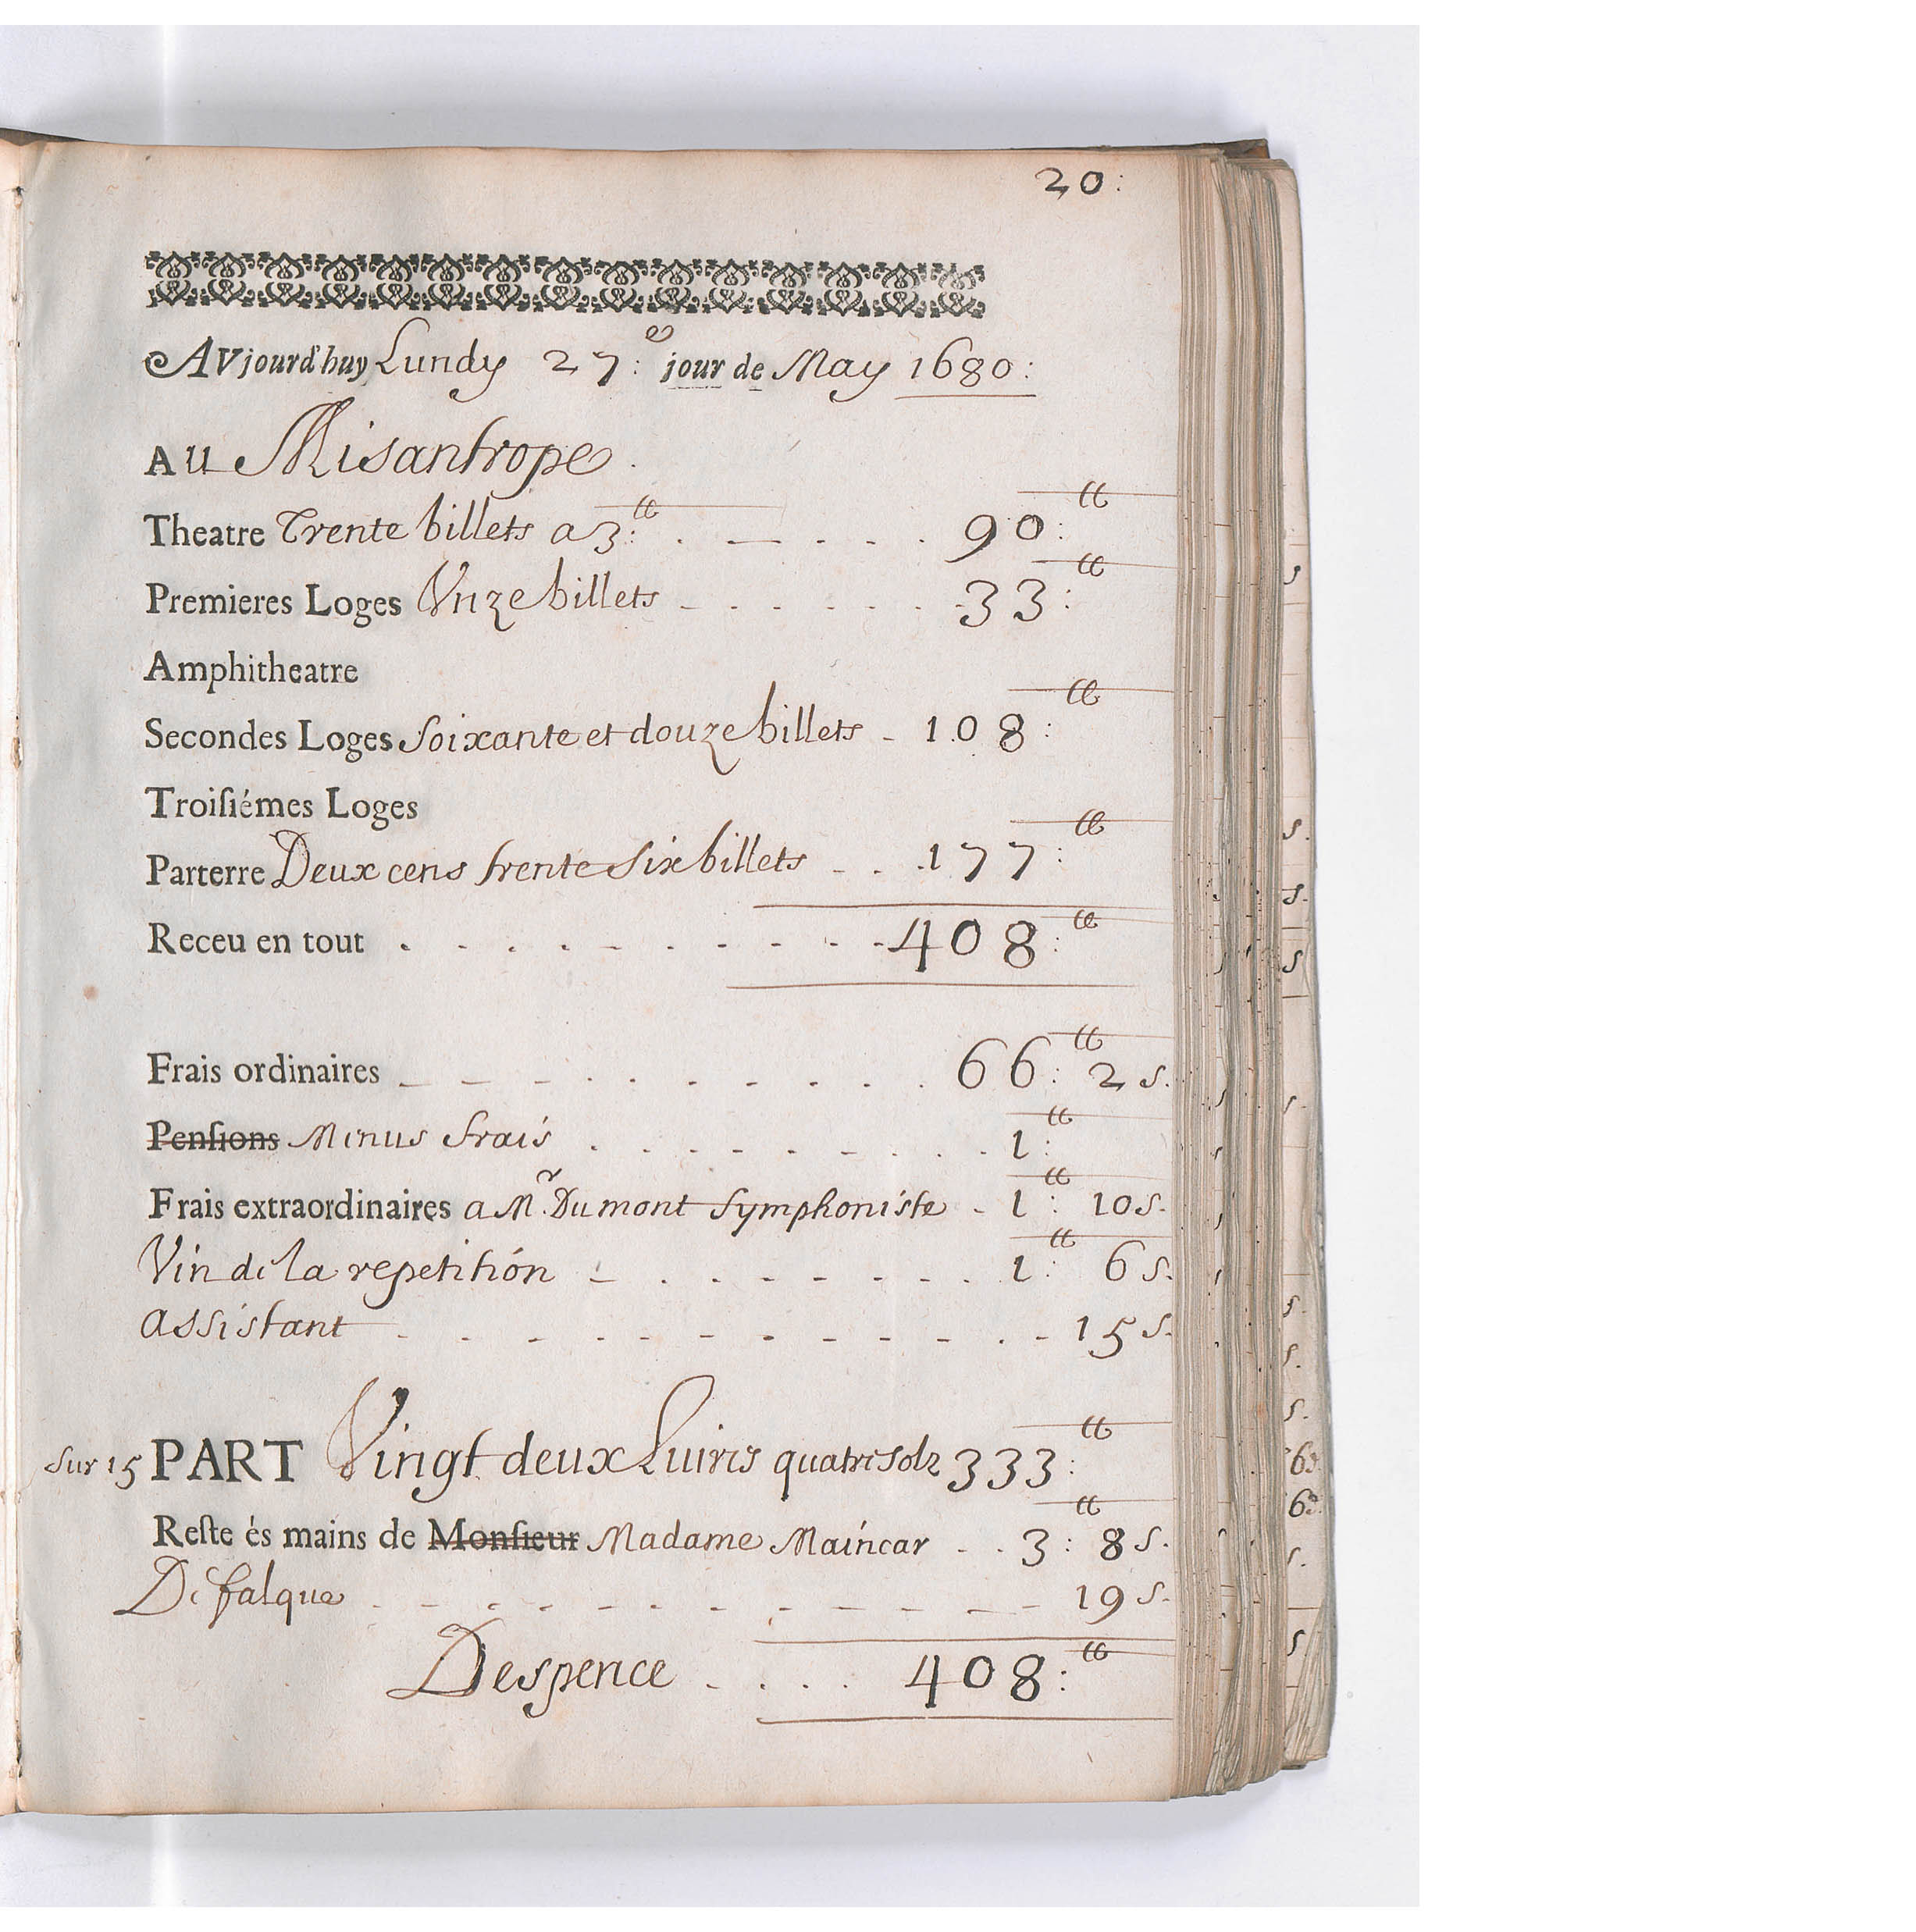 20:
AVjourd'huy Lundy 27:e jour de May 1680:
AU Misantrope.
Theatre Trente billets a 3:tt . — . . . . 90:tt
Premieres Loges Vnze billets - . . . . . 33:tt
Amphitheatre
Secondes Loges Soixante et douze billets - 108:tt
Troisiémes Loges
Parterre Deux cens trente Six billets - . . 177:tt
Receu en tout . . . . . . . . . 408:tt
Frais ordinaires - - - . . . . . . . 66:tt 2 s.
Pensions Menus frais . . . . . . . . 1:tt
Frais extraordinaires a Mr. Dumont Symphoniste - 1:tt 10 s.
Vin de la repetition - . . . . . . . 1:tt 6 s.
assistant - - - - - - - - - - - 15 s.
Sur 15 PART Vingt deux Luires quatre solz 333:tt
Reste és mains de Monsieur Madame Maincar . . 3:tt 8 s.
De falque - - - - - - - - - - 19 s.
Despence . . . . 408:tt